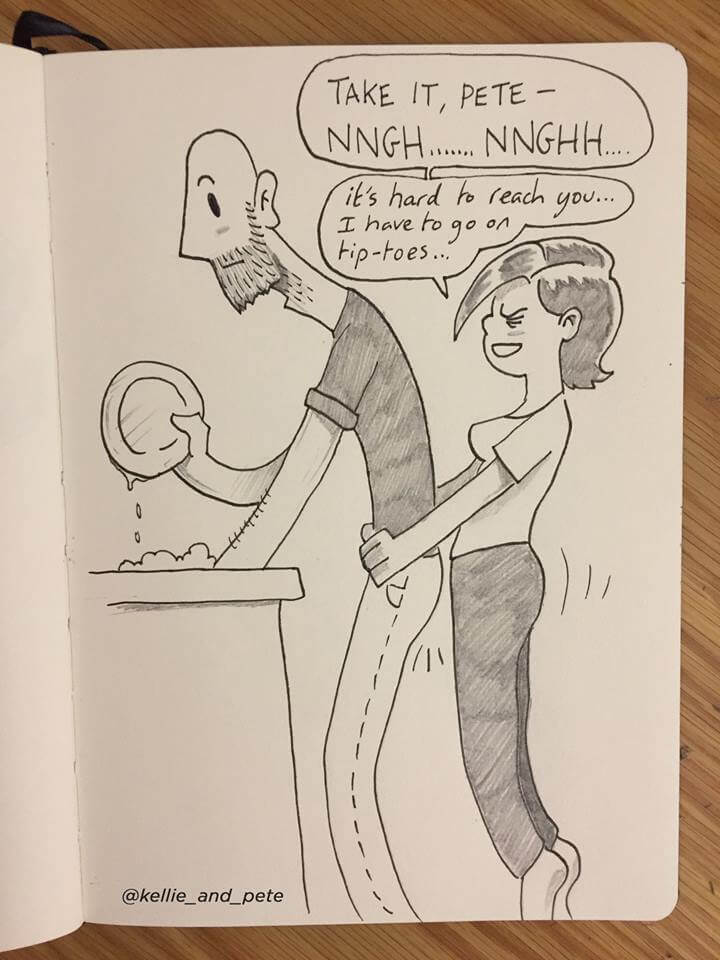 TAKE IT, PETE –
NNGH....... NNGHH....
it's hard to reach you...
I have to go on
tip-toes...
@kellie_and_pete